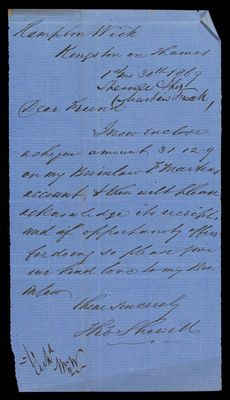 Hampton Wick
Kingston on Thames
1st mo 30th 1869
Dear Friend
I now enclose
a cheque amount 31-12-9
on my Broinlaw F Martins
account & thou wilt please
acknowledge its receipt
and if opportunity offers
for doing so please give
our kind love to my Bro
inlaw
thine sincerely
Thos Shewell